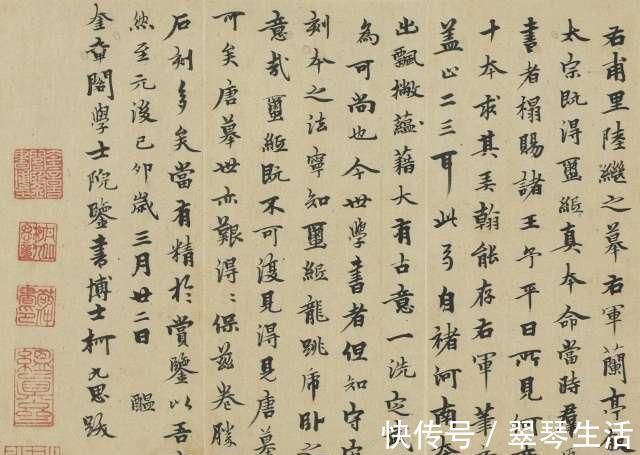 右甫里陸繼之摹右軍蘭亭
太宗既得璽紙真本命當時
書者搨賜諸王予平日所見何
十本求其弄翰能存右軍筆
盖止二三耳此弓自褚河南
出飄撇蘊藉大有古意一洗定武
為可尚也今世學書者但知守定
刻本之法寧知璽紙龍跳虎卧之
意哉璽紙既不可復見得見唐摹
可矣唐摹世亦艱得：保兹卷勝
石刻多矣當有精於賞鑒以吾
然至元後己卯歲三月廿二日 醖
奎章閣學士院鑒書博士柯九思跋
快传号 / 翠琴生活